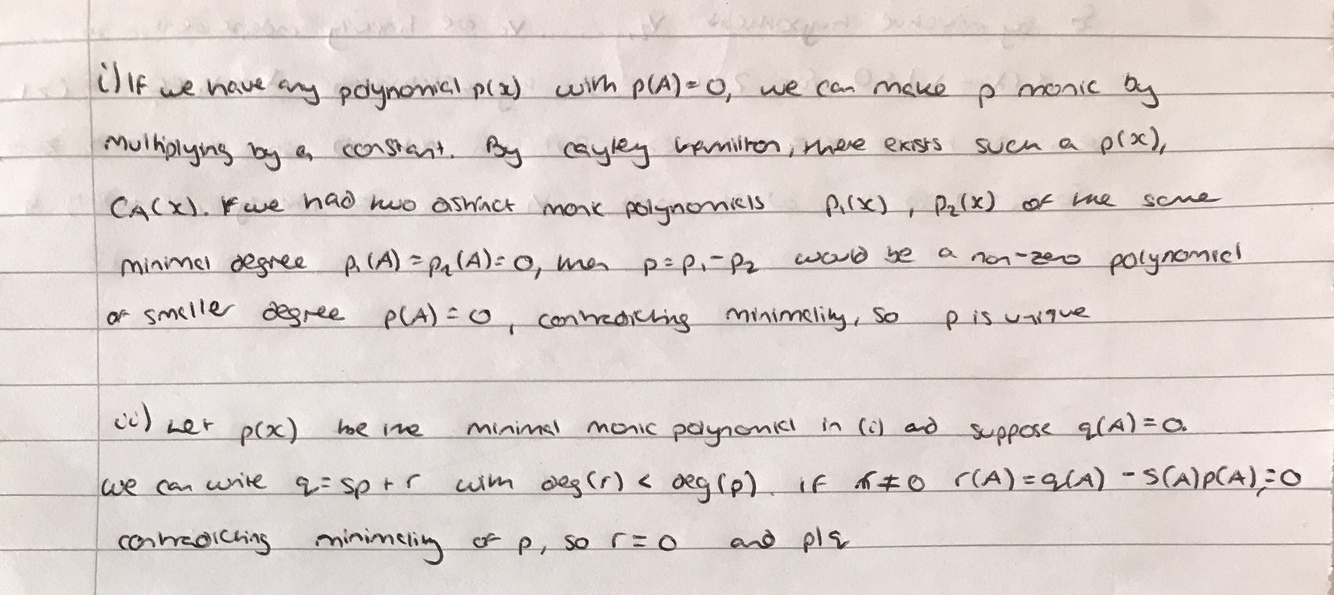 i) If we have any polynomial p(x) with p(A)=0, we can make p monic by
multiplying by a constant. By cayley hamilton, there exists such a p(x),
C_A(x). If we had two distinct monic polynomials p₁(x), p₂(x) of the same
minimal degree p₁(A) = p₂(A) = 0, then p = p₁ - p₂ would be a non-zero polynomial
of smaller degree p(A) = 0, contradicting minimality, so p is unique
ii) Let p(x) be the minimal monic polynomial in (i) and suppose q(A) = 0.
we can write q = sp + r with deg(r) < deg(p). if r ≠ 0 r(A) = q(A) - s(A)p(A) = 0
contradicting minimality of p, so r = 0 and p|q